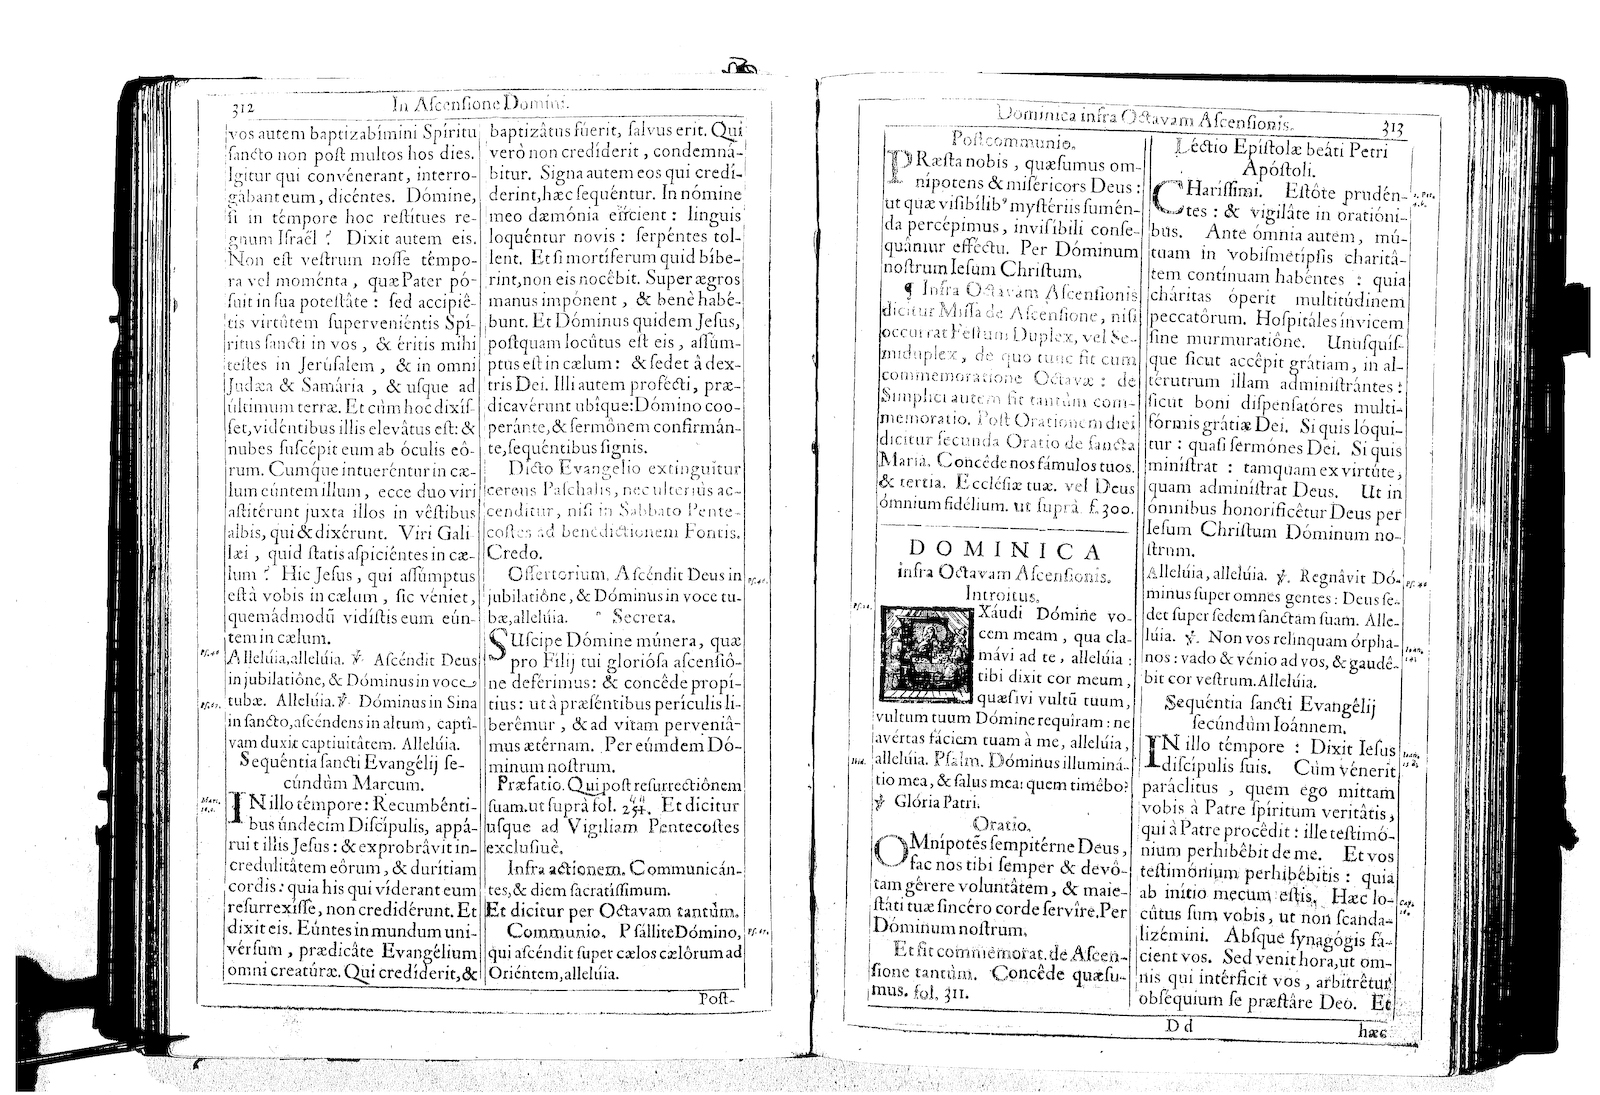 312
In Ascensione Domini.
vos autem baptizabímini Spíritu
sancto non post multos hos dies.
Igitur qui convénerant, interro-
gâbant eum, dicéntes. Dómine,
si in témpore hoc restítues re-
gnum Israél? Dixit autem eis.
Non est vestrum nosse témpo-
ra vel moménta, quæ Pater pó-
suit in sua potestâte: sed accipiê-
tis virtûtem superveniéntis Spí-
ritus sancti in vos, & éritis mihi
testes in Jerúsalem, & in omni
Judæa & Samária, & usque ad
últimum terræ. Et cùm hoc dixís-
set, vidéntibus illis elevâtus est: &
nubes suscêpit eum ab óculis eô-
rum. Cumque intueréntur in cæ-
lum eúntem illum, ecce duo viri
astitérunt juxta illos in vêstibus
albis, qui & dixérunt. Viri Gali-
læi, quid statis aspiciéntes in cæ-
lum? Hic Jesus, qui assúmptus
est à vobis in cælum, sic véniet,
quemádmodũ vidístis eum eún-
tem in cælum.
Allelúia, allelúia. ℣. Ascéndit Deus
in jubilatiône, & Dóminus in voce
tubæ. Allelúia. ℣. Dóminus in Sina
in sancto, ascéndens in altum, captí-
vam duxit captiuitâtem. Allelúia.
Sequéntia sancti Evangélij se-
cúndùm Marcum.
IN illo témpore: Recumbénti-
bus úndecim Discípulis, appá-
ruit illis Jesus: & exprobrâvit in-
credulitâtem eôrum, & durítiam
cordis: quia his qui víderant eum
resurrexísse, non credidérunt. Et
dixit eis. Eúntes in mundum uni-
vérsum, prædicâte Evangélium
omni creatúræ. Qui credíderit, &
baptizâtus fúerit, salvus erit. Qui
verò non credíderit, condemná-
bitur. Signa autem eos qui credí-
derint, hæc sequéntur. In nómine
meo dæmónia eiícient: linguis
loquéntur novis: serpéntes tol-
lent. Et si mortíferum quid bíbe-
rint, non eis nocêbit. Super ægros
manus impónent, & benè habé-
bunt. Et Dóminus quidem Jesus,
postquam locûtus est eis, assúm-
ptus est in cælum: & sedet à dex-
tris Dei. Illi autem profécti, præ-
dicavérunt ubîque: Dómino coo-
perànte, & sermônem confirmán-
te, sequéntibus signis.
Dicto Evangelio extinguitur
cereus Paschalis, nec ulteriùs ac-
cenditur, nisi in Sabbato Pente-
costes ad benedictionem Fontis.
Credo.
Offertorium. Ascéndit Deus in
jubilatiône, & Dóminus in voce tu-
bæ, allelúia. Secreta.
SUscipe Dómine múnera, quæ
pro Fílij tui gloriósa ascensió-
ne deférimus: & concêde propí-
tius: ut à præséntibus perículis li-
berêmur, & ad vitam perveniâ-
mus ætérnam. Per eúmdem Dó-
minum nostrum.
Præfatio. Qui post resurrectiônem
suam. ut suprà fol. 254. Et dicitur
usque ad Vigiliam Pentecostes
exclusiuè.
Infra actionem. Communicán-
tes, & diem sacratíssimum.
Et dicitur per Octavam tantùm.
Communio. Psállite Dómino,
qui ascéndit super cælos cælôrum ad
Oriéntem, allelúia.
Post-
Dominica infra Octavam Ascensionis.
313
Postcommunio.
PRæsta nobis, quæsumus om-
nípotens & miséricors Deus:
ut quæ visíbilib⁹ mystériis sumén-
da percépimus, invisíbili conse-
quâmur efféctu. Per Dóminum
nostrum Iesum Christum.
¶ Infra Octavam Ascensionis
dicitur Missa de Ascensione, nisi
occurrat Festum Duplex, vel Se-
miduplex, de quo tunc fit cum
commemoratione Octavæ: de
Simplici autem fit tantùm com-
memoratio. Post Orationem diei
dicitur secunda Oratio de sancta
Maria. Concêde nos fámulos tuos.
& tertia. Ecclésiæ tuæ. vel Deus
ómnium fidélium. ut suprà f. 300.
DOMINICA
infra Octavam Ascensionis.
Introitus.
EXáudi Dómine vo-
cem meam, qua cla-
mávi ad te, allelúia:
tibi dixit cor meum,
quæsívi vultũ tuum,
vultum tuum Dómine requíram: ne
avértas fáciem tuam à me, allelúia,
allelúia. Psalm. Dóminus illuminá-
tio mea, & salus mea: quem timébo?
℣. Glória Patri.
Oratio.
OMnípotẽs sempitérne Deus,
fac nos tibi semper & devô-
tam gérere voluntâtem, & maie-
státi tuæ sincéro corde servíre. Per
Dóminum nostrum.
Et fit commemorat. de Ascen-
sione tantùm. Concêde quæsu-
mus. fol. 311.
Léctio Epístolæ beáti Petri
Apóstoli.
CHaríssimi. Estôte prudén-
tes: & vigilâte in oratióni-
bus. Ante ómnia autem, mú-
tuam in vobismetípsis charitâ-
tem contínuam habéntes: quia
cháritas óperit multitúdinem
peccatôrum. Hospitáles ínvicem
sine murmuratiône. Unusquís-
que sicut accêpit grátiam, in al-
térutrum illam administrántes:
sicut boni dispensatóres multi-
fórmis grátiæ Dei. Si quis lóqui-
tur: quasi sermónes Dei. Si quis
minístrat: tamquam ex virtúte,
quam adminístrat Deus. Ut in
ómnibus honorificêtur Deus per
Iesum Christum Dóminum no-
strum.
Allelúia, allelúia. ℣. Regnâvit Dó-
minus super omnes gentes: Deus se-
det super sedem sanctam suam. Alle-
lúia. ℣. Non vos relinquam órpha-
nos: vado & vénio ad vos, & gaudê-
bit cor vestrum. Allelúia.
Sequéntia sancti Evangélij
secúndùm Ioánnem.
IN illo témpore: Dixit Iesus
discípulis suis. Cùm vénerit
paráclitus, quem ego mittam
vobis à Patre spíritum veritâtis,
qui à Patre procêdit: ille testimó-
nium perhibêbit de me. Et vos
testimónium perhibébitis: quia
ab inítio mecum estis. Hæc lo-
cûtus sum vobis, ut non scanda-
lizémini. Absque synagógis fá-
cient vos. Sed venit hora, ut om-
nis qui intérficit vos, arbitrêtur
obséquium se præstâre Deo. Et
D d
hæc